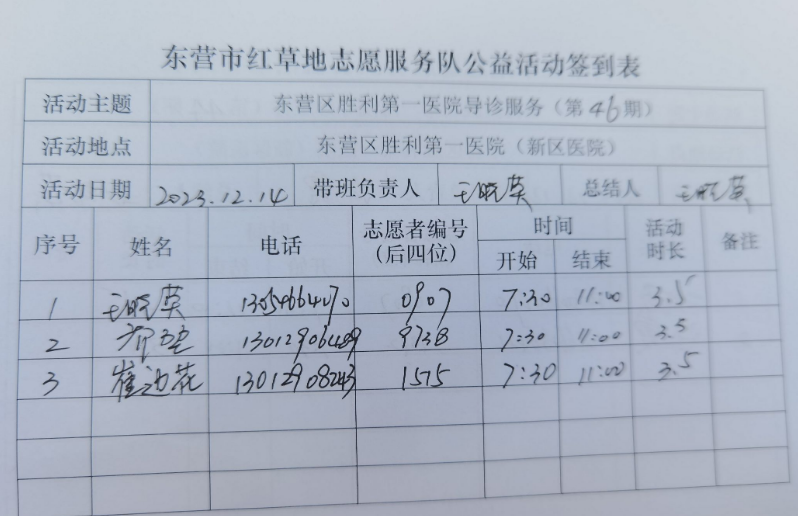 东营市红草地志愿服务队公益活动签到表
活动主题 东营区胜利第一医院导诊服务（第46期）
活动地点 东营区胜利第一医院（新区医院）
活动日期 2023.12.14 带班负责人 王晓英 总结人 王晓英
序号 姓名 电话 志愿者编号（后四位） 时间 开始 结束 活动时长 备注
1 王晓英 0907 7:30 11:00 3.5
2 9738 7:30 11:00 3.5
3 崔迎花 13012908243 1575 7:30 11:00 3.5